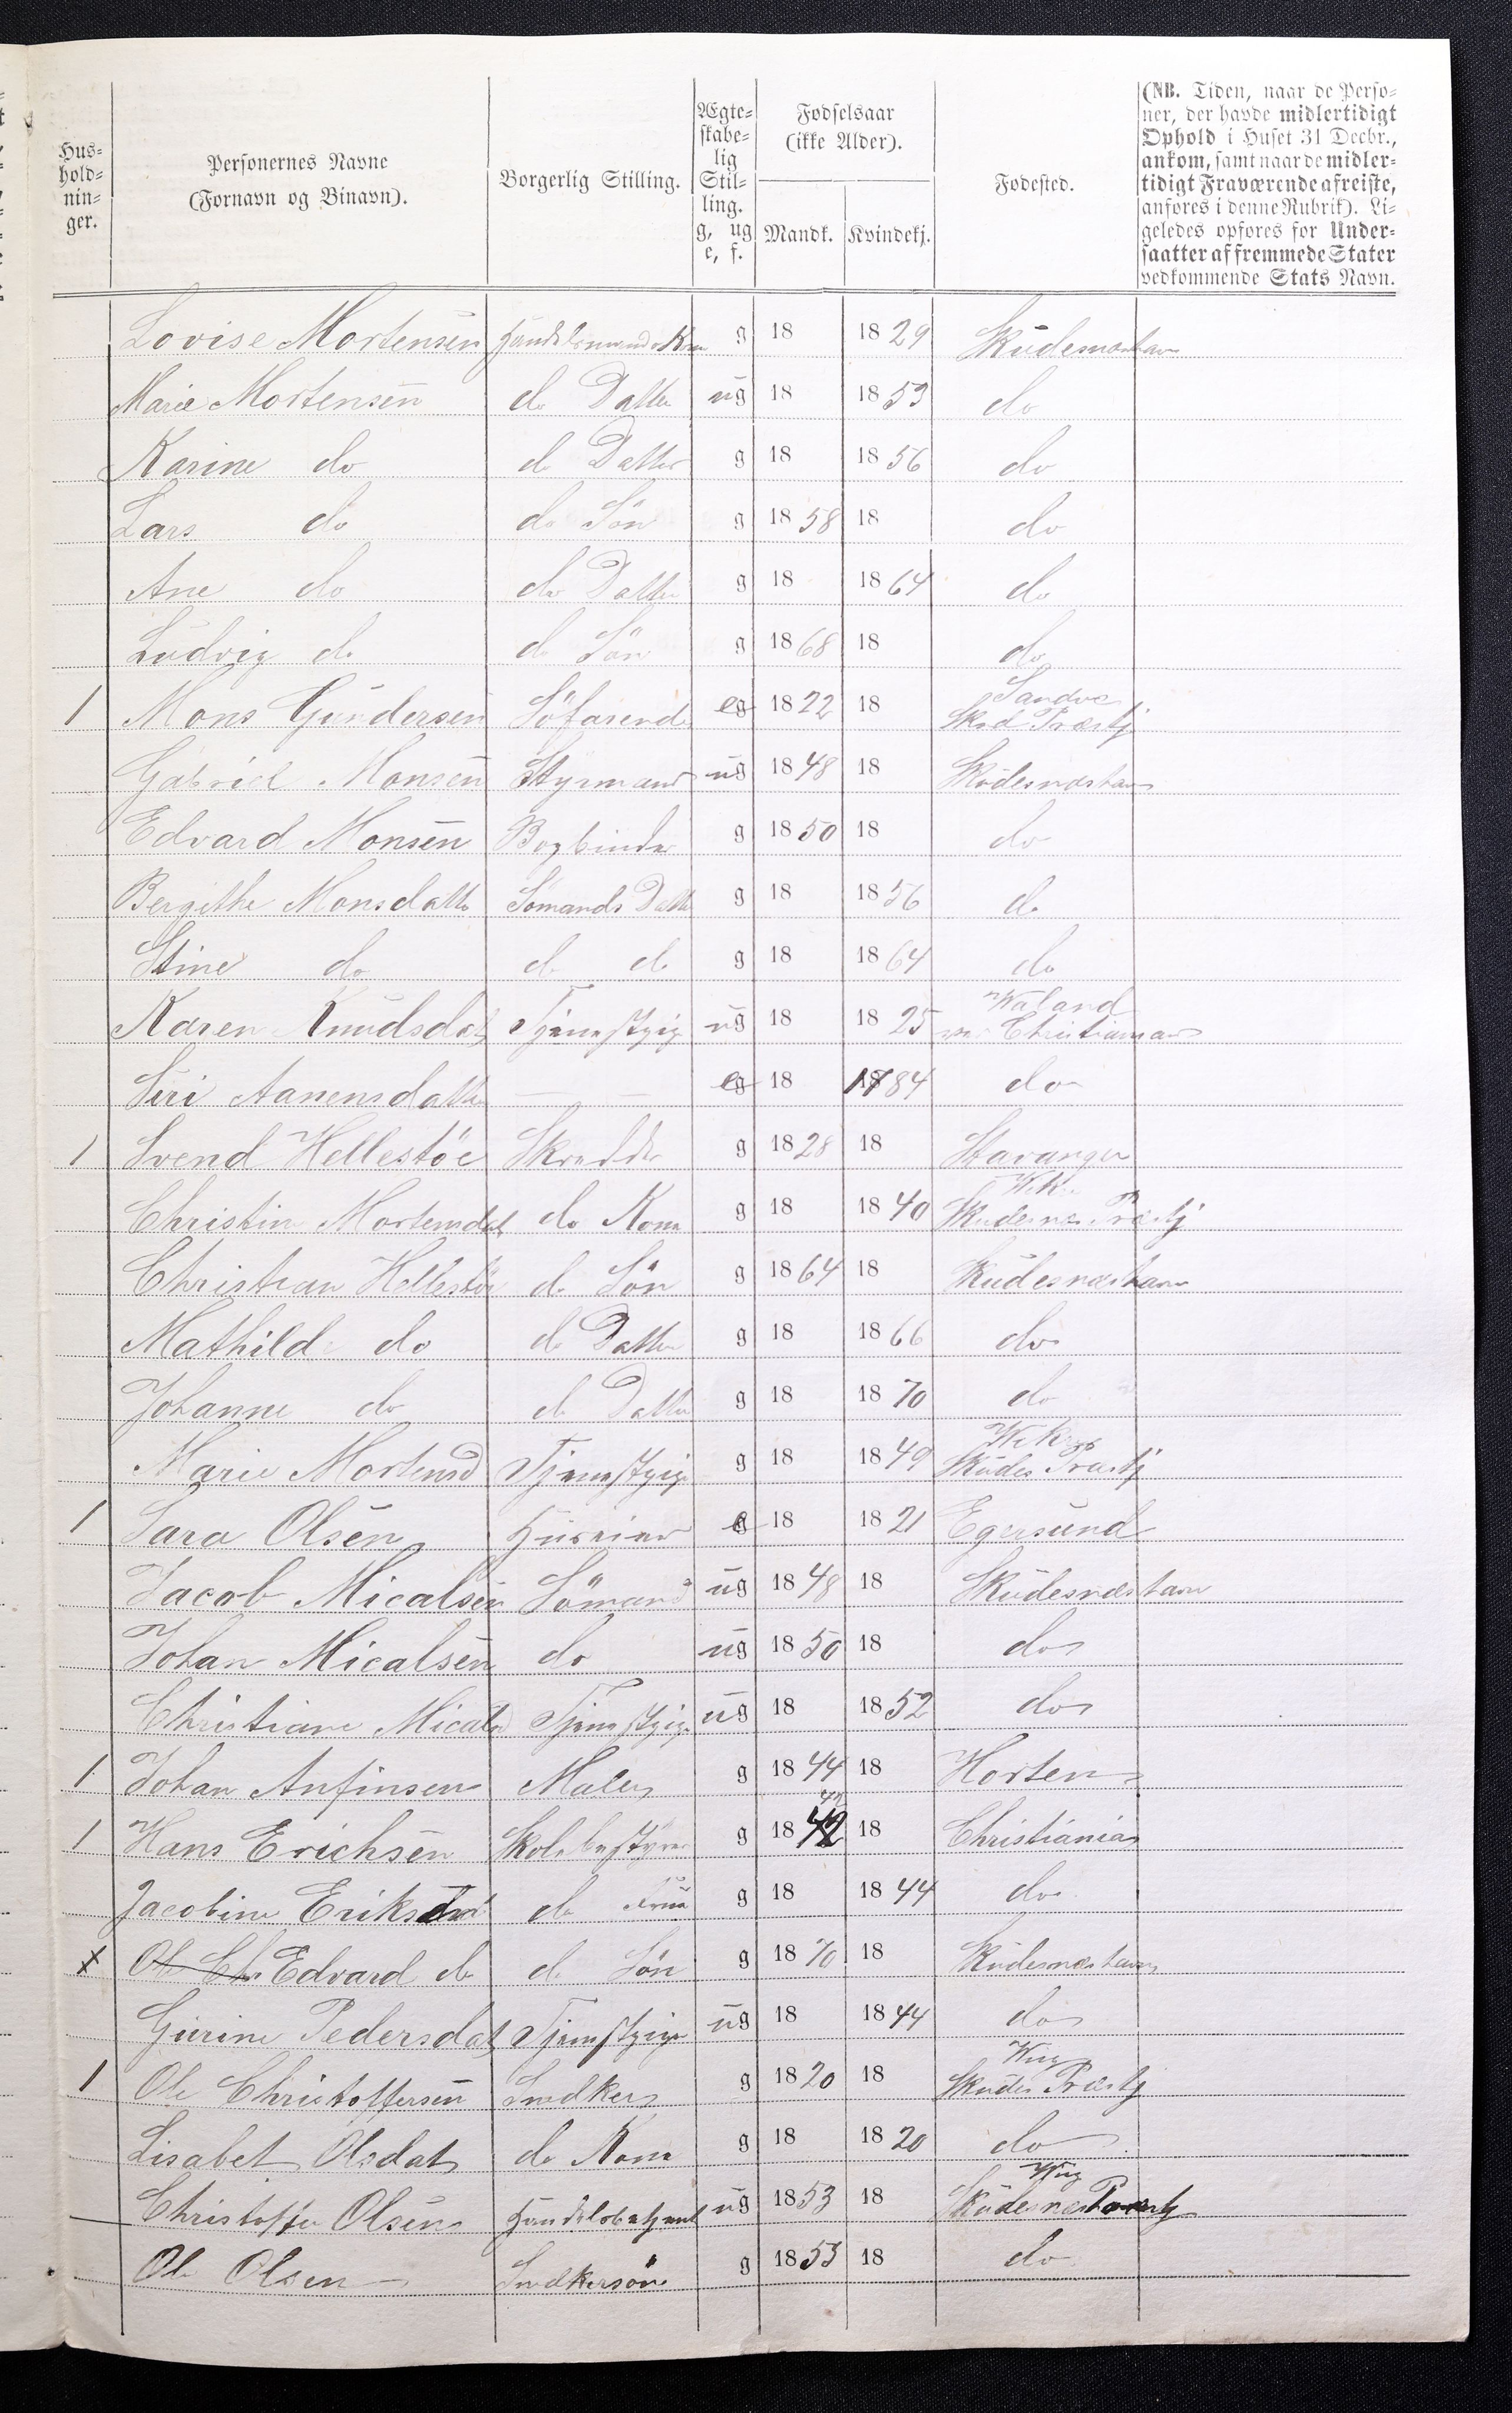 Hus-
hold-
nin-
ger.
Personernes Navne
(Fornavn og Binavn).
Borgerlig Stilling.
Ægte-
skabe-
lig
Stil-
ling.
g, ug
e, f.
Fødselsaar
(ikke Alder).
Mandk. Kvindekj.
Fødested.
(NB. Tiden, naar de Perso-
ner, der havde midlertidigt
Ophold i Huset 31 Decbr.,
ankom, samt naar de midler-
tidigt Fraværende afreiste,
anføres i denne Rubrik). Li-
geledes opføres for Under-
saatter af fremmede Stater
vedkommende Stats Navn.
Lovise Mortensen g 18 1829
Marie Mortensen do Datter ug 18 1859 do
Karine do do Datter g 18 1856 do
Lars do do Sön g 1858 18 do
Ane do do Datter g 18 1864 do
Ludvig do do Sön g 1868 18 do
Sandve
1 Mons Gundersen Söfarende eg 1822 18 Skud Præstgj
Gabriel Monsen Styrmand ug 1848 18 Skudesnæshavn
Edvard Monsen Bogbinder g 1850 18 do
Bergithe Monsdatter Sömands Datter g 18 1856 do
Stine do do do g 18 1864 do
Waland
Karen Knudsdat Tjenestpige ug 18 1825 Christiansand
Siri Aanensdatter — — eg 18 1784 do
1 Svend Hellestöe Skrædder g 1828 18 Stavanger
Christine Mortensdat do Kone g 18 1840 Skudesnæs Præstgj
Christian Hellestöe do Sön g 1864 18 Skudesnæshavn
Mathilde do do Datter g 18 1866 do
Johanne do do Datter g 18 1870 do
Marie Mortensd Tjenestpige g 18 1849 Skudes Præstgj
1 Sara Olsen Huseier e 18 1821 Egersund
Jacob Micalsen Sömand ug 1848 18 Skudesnæshavn
Johan Micalsen do ug 1850 18 do
Christiane Micalsd Tjenestpige ug 18 1852 do
1 Johan Anfinsen Maler g 1844 18 Horten
42
1 Hans Erichsen Skolebestyrer g 1842 18 Christiania
Jacobine do Frue g 18 1844 do
x Ole Chr Edvard do do Sön g 1870 18 Skudesnæshavn
Gurine Pedersdat Tjenestpige ug 18 1844 do
1 Ole Christoffersen Snedker g 1820 18 Skudes Præstgj
Lisabet Olsdat do Kone g 18 1820 do
Christoffer Olsen Handelsbetjent ug 1853 18 Skudesnæs Præstgj
Ole Olsen Snedkersön g 1853 18 do